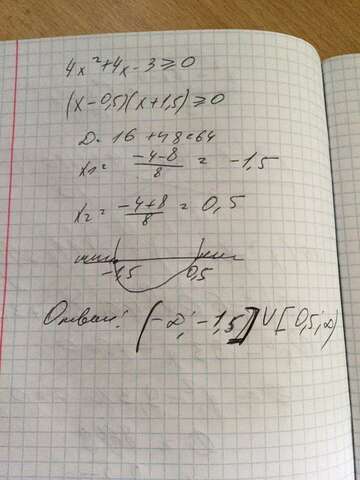 4x²+4x-3≥0
(x-0,5)(x+1,5)≥0
D= 16+48=64
x₁= -4-8/8 = -1,5
x₂= -4+8/8 = 0,5
-1,5 0,5
Ответ: (-∞; -1,5]∪[0,5; ∞)